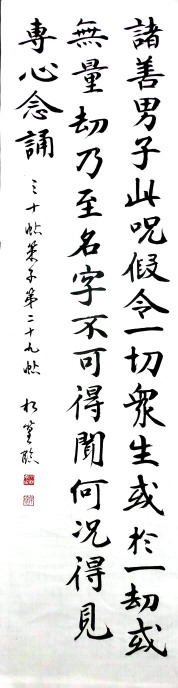 諸善男子此呪假令一切衆生或於一劫或
無量劫乃至名字不可得聞何况得見
專心念誦
三十帖策子第二十九帖
臨